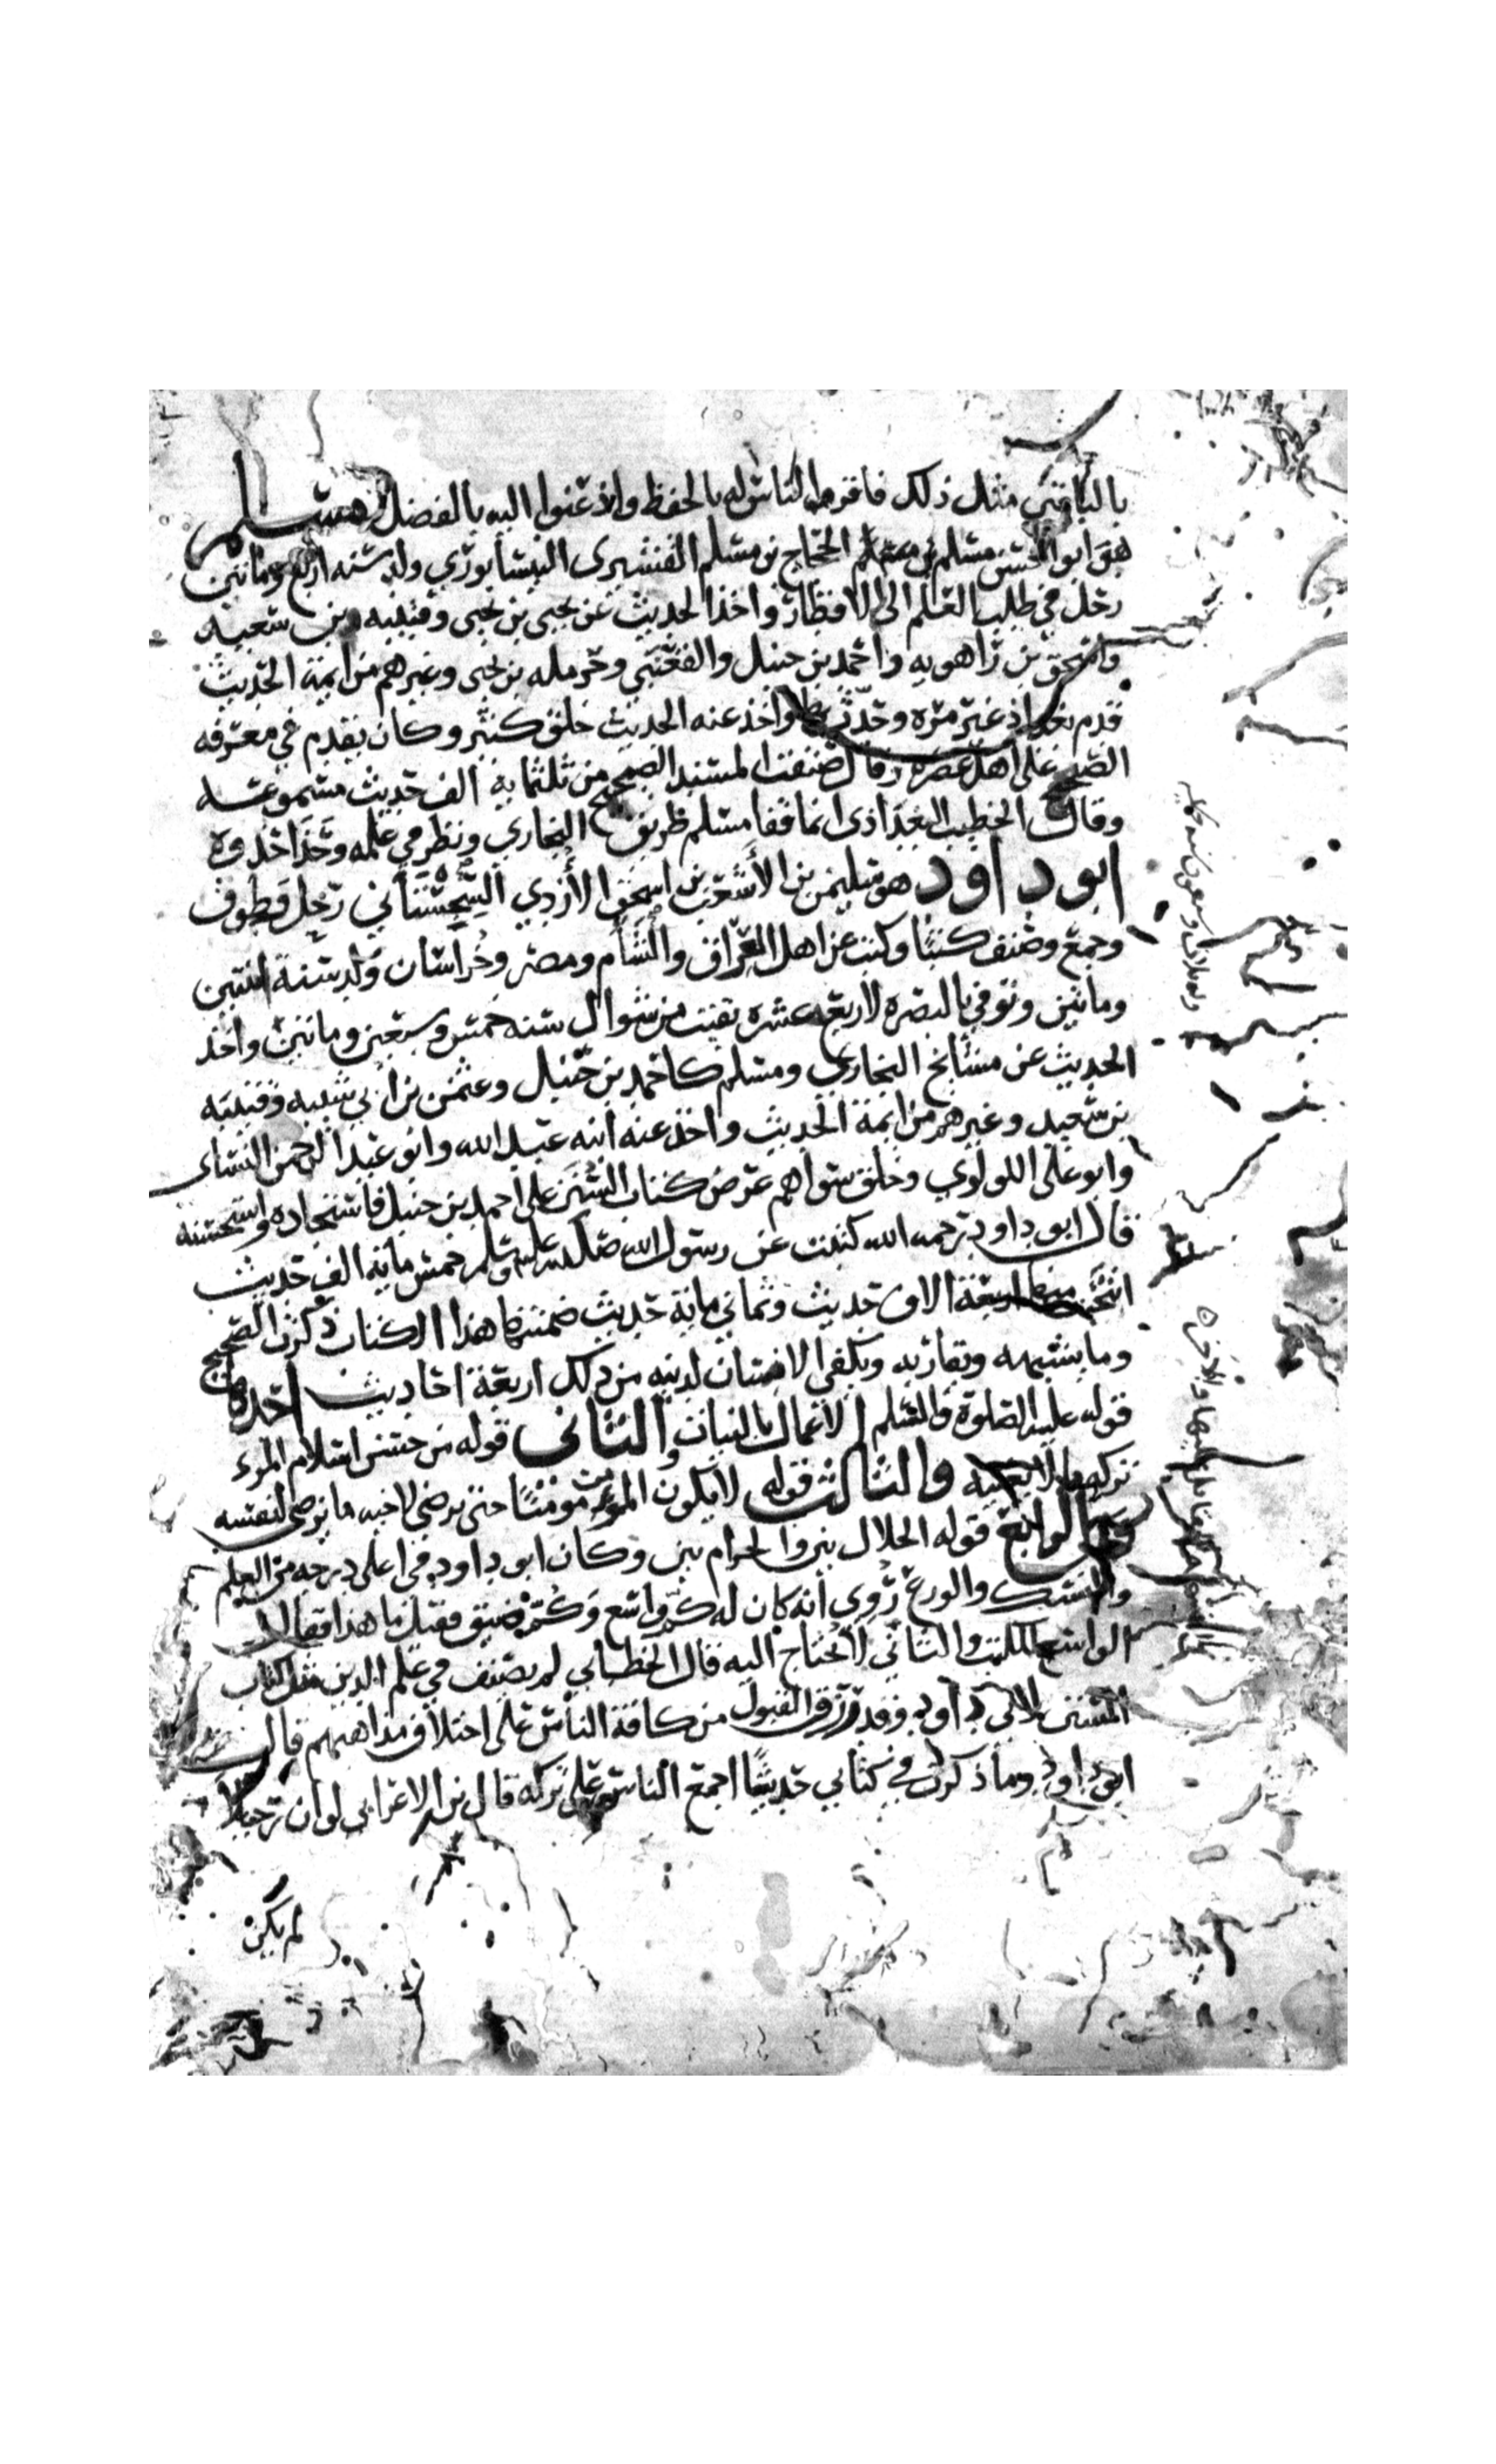 بالباقين مثل ذلك فاقر الناس له بالحفظ واذعنوا اليه بالفضل مسلم
هو ابو الحسن مسلم بن الحجاج بن مسلم القشيرى النيسابوري ولد سنه اربع ومائتين
رحل في طلب العلم الى الاقطار واخذ الحديث عن يحيى بن يحيى وقتيبه بن سعيد
واسحق بن راهويه واحمد بن حنبل والقعنبي وحرمله بن يحيى وغيرهم من ايمة الحديث
قدم بغداد غير مره وحدث بها واخذ عنه الحديث خلق كثير وكان يقدم في معرفه
الصحيح على اهل عصره وقال صنفت المسند الصحيح من ثلثماية الف حديث مسموعة
وقال الخطيب البغداذى انما قفا مسلم طريق البخاري ونظر في علمه وحذا حذوه
ابو داود هو سليمن بن الأشعث بن اسحق الأزدي السجستاني رحل وطوف
وجمع وصنف كتبا وكتب عن اهل العراق والشام ومصر وخراسان ولد سنة اثنتين
ومائتين وتوفي بالبصره لاربع عشره بقيت من شوال سنه خمس وسبعين ومائتين واخذ
الحديث عن مشايخ البخاري ومسلم كاحمد بن حنبل وعثمن بن ابي شيبه وقتيبه
بن سعيد وغيرهم من ايمة الحديث واخذ عنه ابنه عبد الله وابو عبد الرحمن النساى
وابو على اللولوي وخلق سواهم عرض كتاب السنن على احمد بن حنبل فاستجاده واستحسنه
قال ابو داود رحمه الله كتبت عن رسول الله صلى الله عليه وسلم خمس ماية الف حديث
انتخبت منها اربعة الاف حديث وثماني ماية حديث ضمنتها هذا الكتاب ذكرت الصحيح
وما يشبهه ويقاربه ويكفي الانسان لدينه من ذلك اربعة احاديث احدها
قوله عليه الصلوة والسلم الاعمال بالنيات والثانى قوله من حسن اسلام المرء
تركه ما لا يعنيه والثالث قوله لا يكون المومن مومنًا حتى يرضى لاخيه ما يرضى لنفسه
والرابع قوله الحلال بين والحرام بين وكان ابو داود في اعلى درجه من العلم
والنسك والورع رُوي أنه كان له كم واسع وكم ضيق فقيل ما هذا فقال
الواسع للكتب والثاني لا نحتاج اليه قال الخطابي لم يصنف في علم الدين مثل كتاب
السنن لابي داود وقد رزق القبول من كافة الناس على اختلاف مذاهبهم قال
ابو داود وما ذكرت في كتابي حديثًا اجمع الناس على تركه قال بن الاعرابي لو ان رجلا
لم يكن